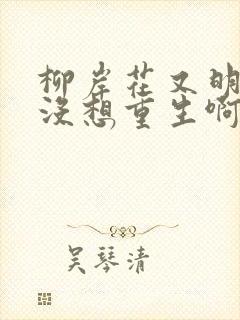 柳岸花又明
没想重生啊
吴琴清